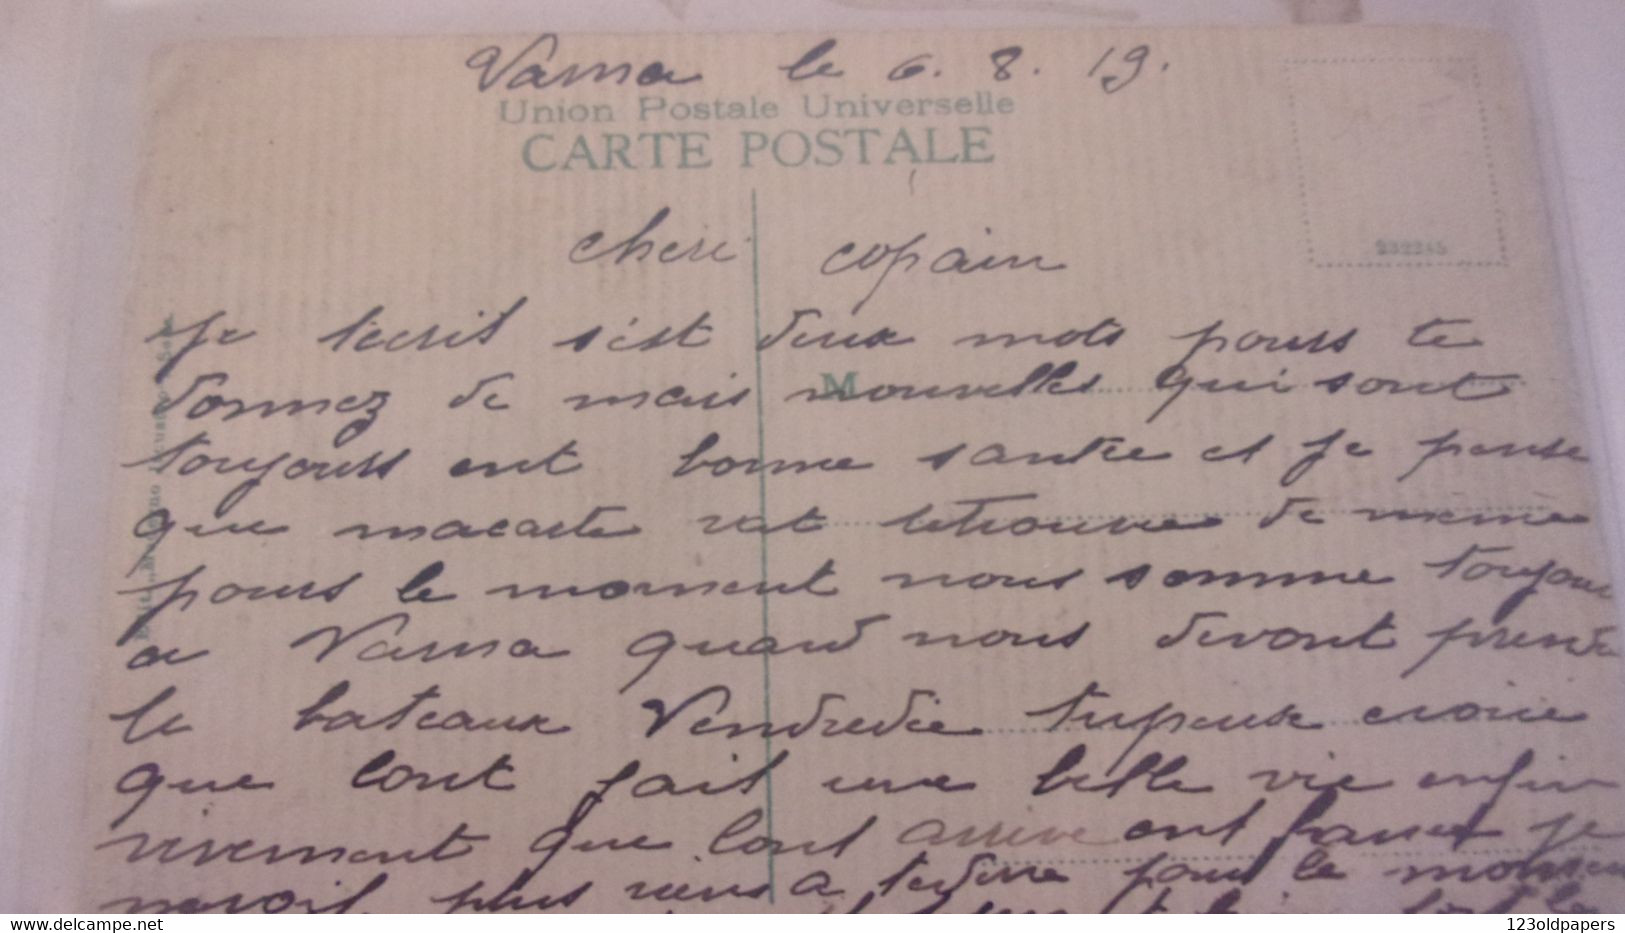 Varna le 6. 8. 19.
Union Postale Universelle
CARTE POSTALE
232245
cheri copain
Je tecrit s'est deux mots pours te
M
donnez de mais nouvelles qui sont
toujours ent bonne santée et je pense
que macarte vat letrouve de même
pours le moment nous somme toujour
a Varna quand nous devont prendre
le bateaux Vendredie tupeux croire
que lont fait une belle vie enfin
vivement que lont arrive ent france je
nevoit plus rien a tedire pour le moment
delcampe.net
123oldpapers